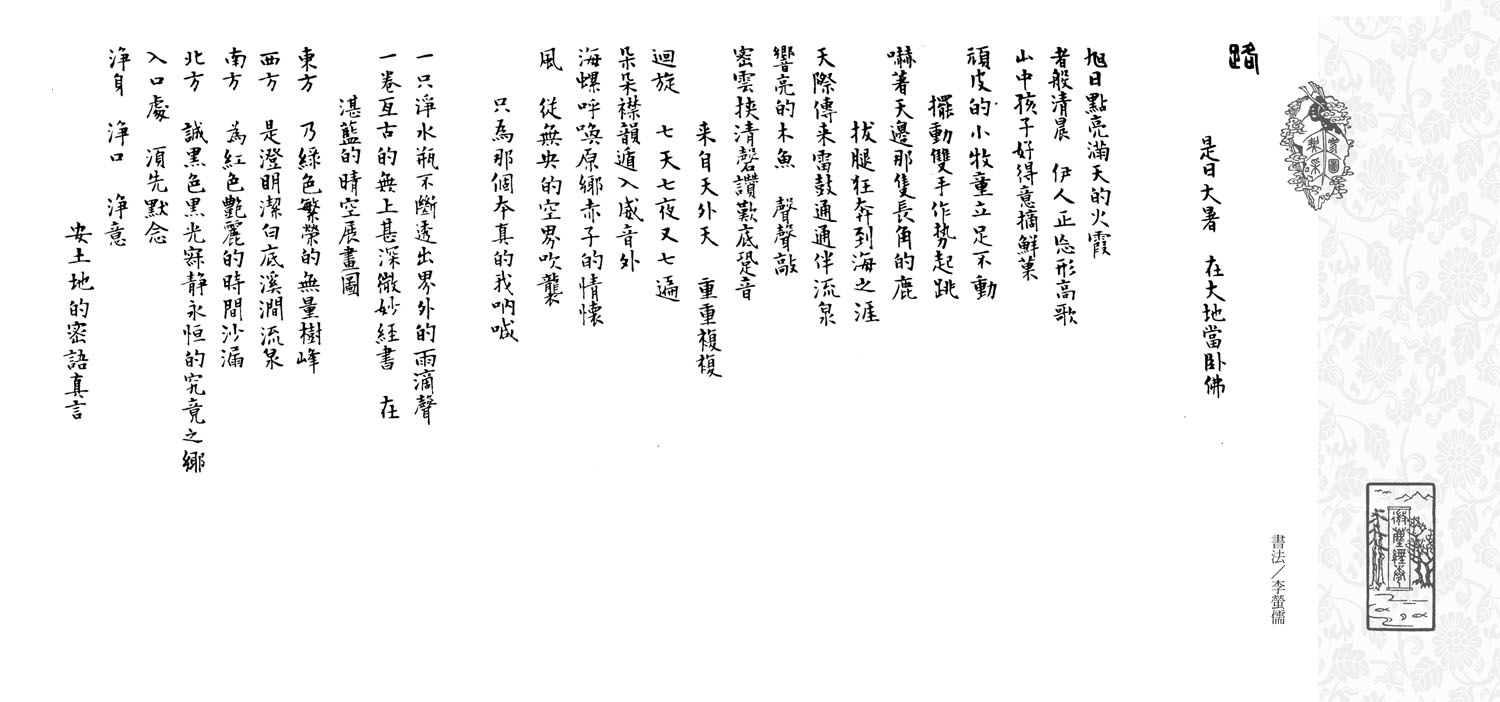 路
是日大暑　在大地當卧佛
旭日點亮滿天的火霞
者般清晨　伊人正忘形高歌
山中孩子好得意摘鮮菓
頑皮的小牧童立足不動
擺動雙手作勢起跳
嚇著天邊那隻長角的鹿
拔腿狂奔到海之涯
天際傳来雷鼓通通伴流泉
響亮的木魚　聲聲敲
密雲挾清磬讚歎底跫音
来自天外天　重重複複
迴旋　七天七夜又七遍
朵朵襟韻遁入威音外
海螺呼喚原鄉赤子的情懷
風　從無央的空界吹襲
只為那個本真的我吶喊
一只淨水瓶不斷透出界外的雨滴聲
一卷亙古的無上甚深微妙経書　在
湛藍的晴空展畫圖
東方　乃綠色繁榮的無量樹峰
西方　是澄明潔白底溪澗流泉
南方　為紅色艷麗的時間沙漏
北方　誠黑色黑光寂静永恒的究竟之鄉
入口處　須先默念
淨身　淨口　淨意
安土地的密語真言
書法／李螢儒